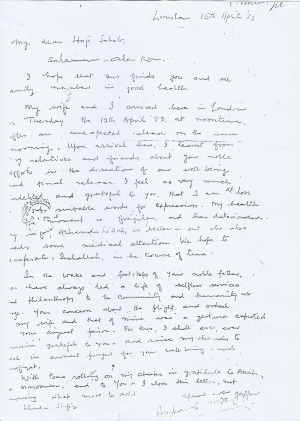 London 15th April 83
My dear Haji Saheb,
Salaamun-Alai Kum.
I hope that this finds you and all
family members in good health.
My wife and I arrived here in London
Tuesday the 12th April 83 at noontime,
after an unexpected release on the same
morning. Upon arrival here, I learnt from
my relatives and friends about you noble
efforts in the direction of our well being
and final release. I feel so very much
indebted and grateful to you that I am at loss
suitable words for expression. My health
is fragile, and has deteriorated.
My wife Alhamdu lillah, is better but she also
needs some medical attention. We hope to
recuperate, Inshallah, in the course of time.
In the wake and footsteps of your noble father,
you have always led a life of selfless services
and Philanthropy to the community and humanity at
large. Your concern about the plight and ordeal
of my wife and that of mine was a gesture expected
your august person. For this, I shall ever, ever
remain grateful to you and raise my hands to
in ardent prayer for your well being and
With tears rolling on my cheeks in gratitude to Allah,
Masoomeen, and to You - I close this letter, not
knowing what more to add.
Khuda Hafiz
Yours